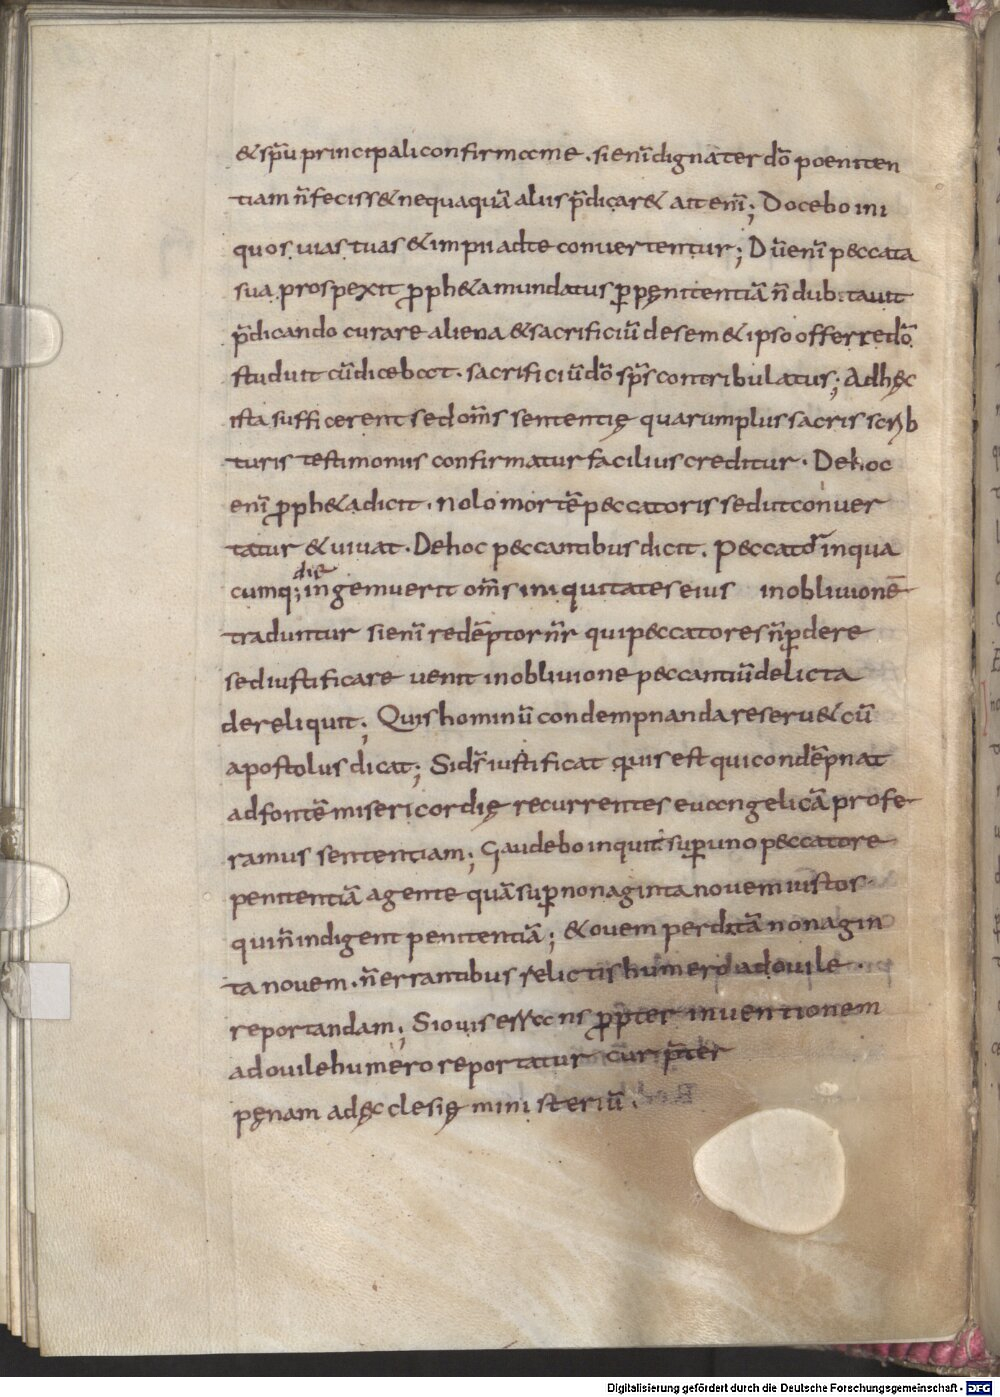 & sp̄u principali confirma me . si enī digna ter dō poeniten
tiam n̄ feciss& nequaquā aliis p̄dicar& ait enī; Docebo ini
quos uias tuas & impii ad te conuertentur; Dū enī peccata
sua prospexit ꝓph&a mundatus ꝑ pęnitentiā n̄ dubitauit
p̄dicando curare aliena & sacrificiū de sem&ipso offerre dō
studuit cū dicebat . sacrificiū dō sp̄s contribulatus; Ad hęc
ista sufficerent sed om̄s sententię quarum plus sacris scrib
turis testimoniis confirmatur facilius creditur . De hoc
enī ꝓph&a dicit . nolo mortē peccatoris sed ut conuer
tatur & uiuat . De hoc peccantibus dicit . Peccator in qua
cumq; die ingemuerit om̄s iniquitates eius in obliuionē
traduntur si enī redēptor nr̄ qui peccatores n̄ ꝑdere
sed iustificare uenit in obliuione peccantiū delicta
dereliquit; Quis hominū condempnanda reseru& cū
apostolus dicat; Si ds̄ iustificat quis est qui condēpnat
ad fontē misericordię recurrentes euangelicā profe
ramus sententiam; Gaudebo inquit sup̱ uno peccatore
penitentiā agente quā sup̱ nonaginta nouem iustos
qui n̄ indigent penitentiā; & ouem perditā nonagin
ta nouem . n̄ errantibus relictis humero ad ouile .
reportandam; Si ouis errans ꝓpter inuentionem
ad ouile humero reportatur cur p̄ter
pęnam ad ęcclesię ministeriū .
Digitalisierung gefördert durch die Deutsche Forschungsgemeinschaft - DFG